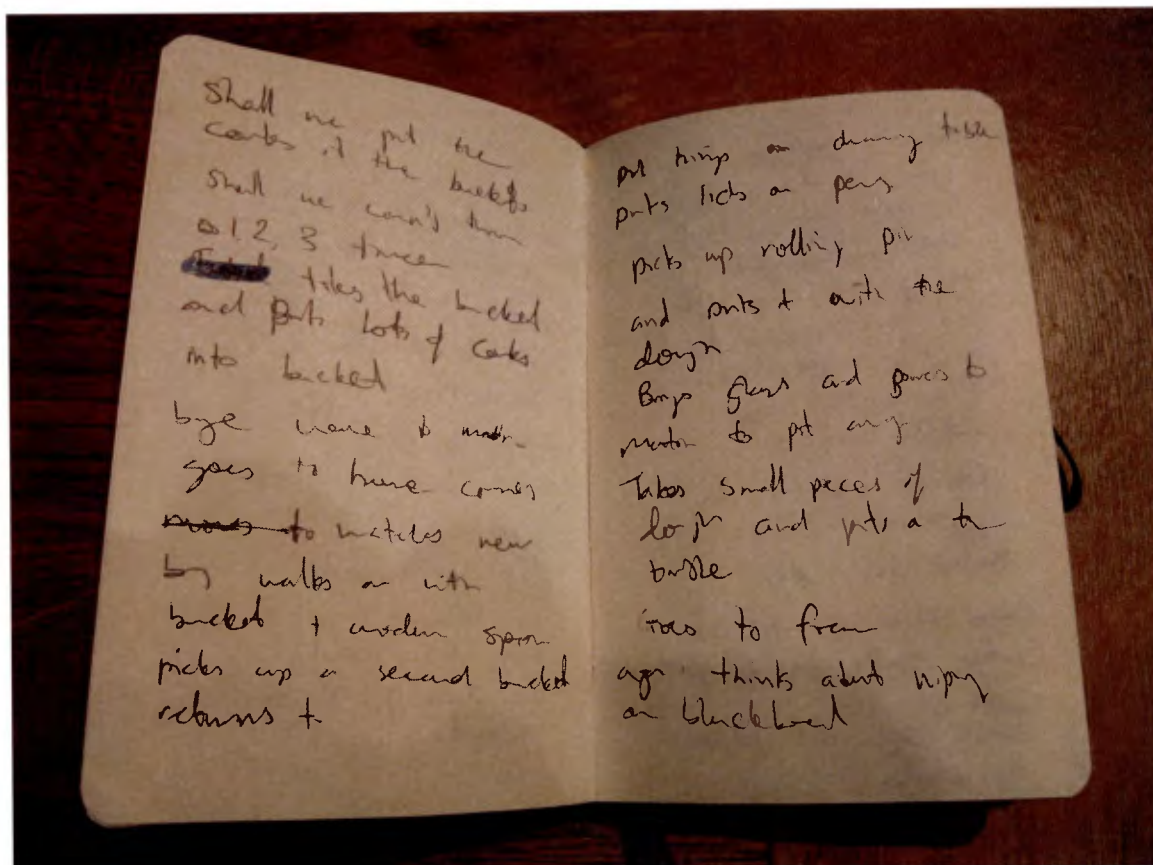 Shall we put the
corks in the buckets
Shall we count them
1, 2, 3 twice
takes the bucket
and puts lots of corks
into bucket
bye
goes to home corner
to watches new
boy walks on with
bucket + wooden spoon
picks up a second bucket
returns t
put things on drawing table
puts lids on pens
picks up rolling pin
and puts it with the
dough
Brings and to
to put away
Takes small pieces of
dough and puts on the
table
to
again thinks about wiping
on blackboard